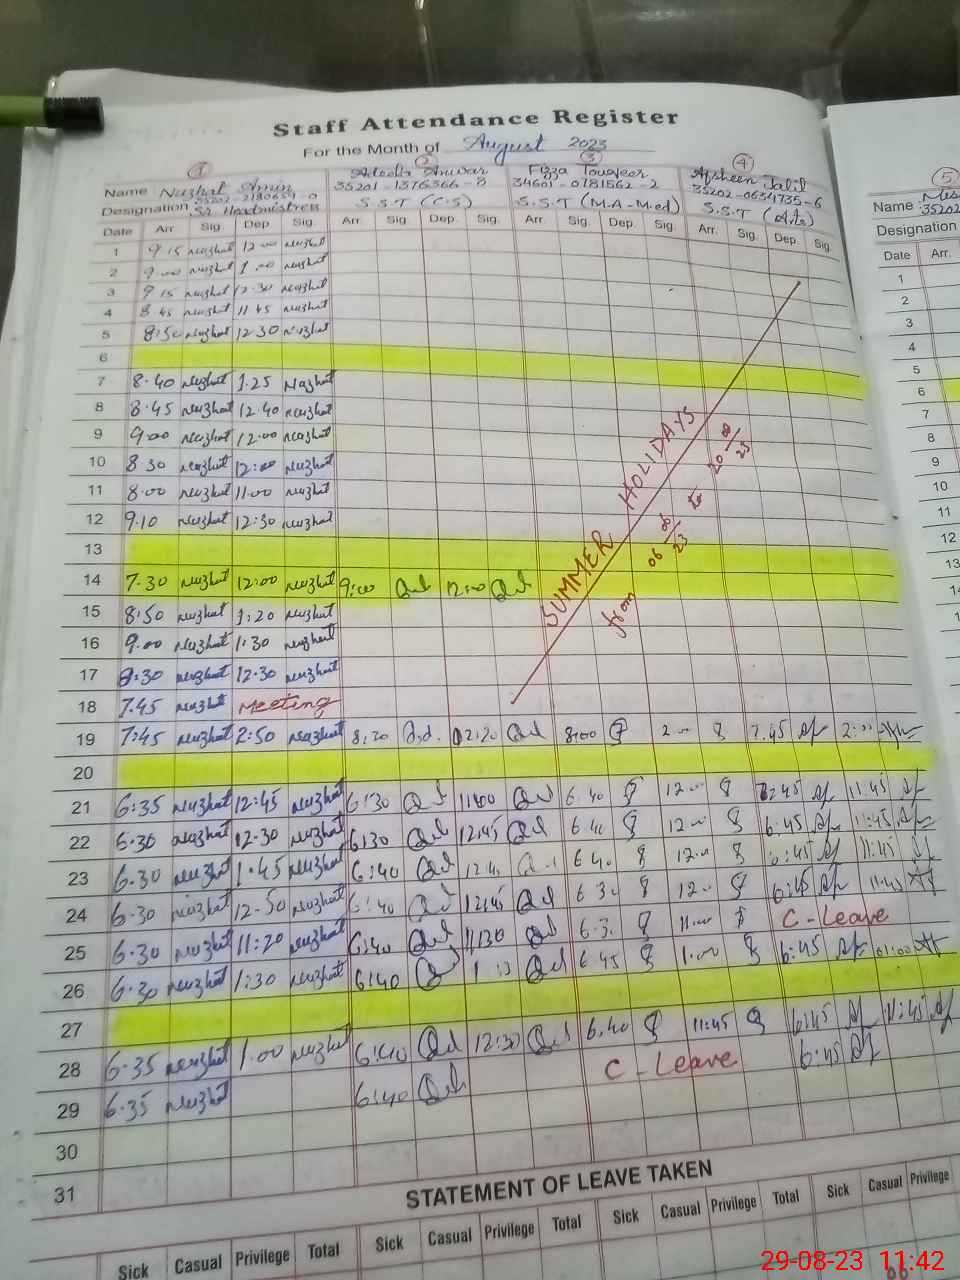 Staff Attendance Register
For the Month of August 2023
1 2 3 4 5
Name Nuzhat Amin Adeela Anwar Fizza Touqeer Afsheen Jalil Name
35202-2180654-0 35201-1376366-8 34601-0781562-2 35202-0654735-6 35202
Designation Sr. Headmistress S.S.T (C.S) S.S.T (M.A-M.ed) S.S.T (Arts) Designation
Date Arr. Sig. Dep. Sig. Arr. Sig. Dep. Sig. Arr. Sig. Dep. Sig. Arr. Sig. Dep. Sig. Date Arr.
1 9 15 Nuzhat 12 00 Nuzhat 1
2 9.00 Nuzhat 1.00 Nuzhat 2
3 9 15 Nuzhat 12.30 Nuzhat 3
4 8 45 Nuzhat 11 45 Nuzhat 4
5 8:50 Nuzhat 12 30 Nuzhat 5
6 6
7 8.40 Nuzhat 1.25 Nuzhat 7
8 8.45 Nuzhat 12.40 Nuzhat 8
9 9.00 Nuzhat 12.00 Nuzhat 9
10 8 30 Nuzhat 12:00 Nuzhat 10
11 8.00 Nuzhat 11.00 Nuzhat 11
12 9.10 Nuzhat 12:30 Nuzhat 12
13 13
SUMMER HOLIDAYS
from 06 06/23 to 20 08/23
14 7.30 Nuzhat 12:00 Nuzhat 9:00 12:00
15 8:50 Nuzhat 1:20 Nuzhat
16 9.00 Nuzhat 1:30 Nuzhat
17 8:30 Nuzhat 12.30 Nuzhat
18 7.45 Nuzhat Meeting
19 7:45 Nuzhat 2:50 Nuzhat 8:20 8:00 2.00 7.45 2:00
20
21 6:35 Nuzhat 12:45 Nuzhat 6:30 11:00 6.40 12.00 11.45
22 6.30 Nuzhat 12.30 Nuzhat 6:30 12:45 6:40 12.00 6:45 11:45
23 6.30 Nuzhat 1.45 Nuzhat 6:40 12:4 6 40 12.00 6:45 11:45
24 6.30 Nuzhat 12.50 Nuzhat 6:40 12:45 6 30 12.00 6:45
25 6.30 Nuzhat 11:20 Nuzhat 6:40 11:30 6.3 11.00 C-Leave
26 6.30 Nuzhat 1:30 Nuzhat 6:40 6.45 1.00 6:45 01:00
27
28 6.35 Nuzhat 1.00 Nuzhat 6:40 12:30 6.40 11:45 6:45 11:45
29 6.35 Nuzhat 6:40 C-Leave 6:45
30
31
STATEMENT OF LEAVE TAKEN
Sick Casual Privilege Total Sick Casual Privilege Total Sick Casual Privilege Total Sick Casual Privilege
29-08-23 11:42